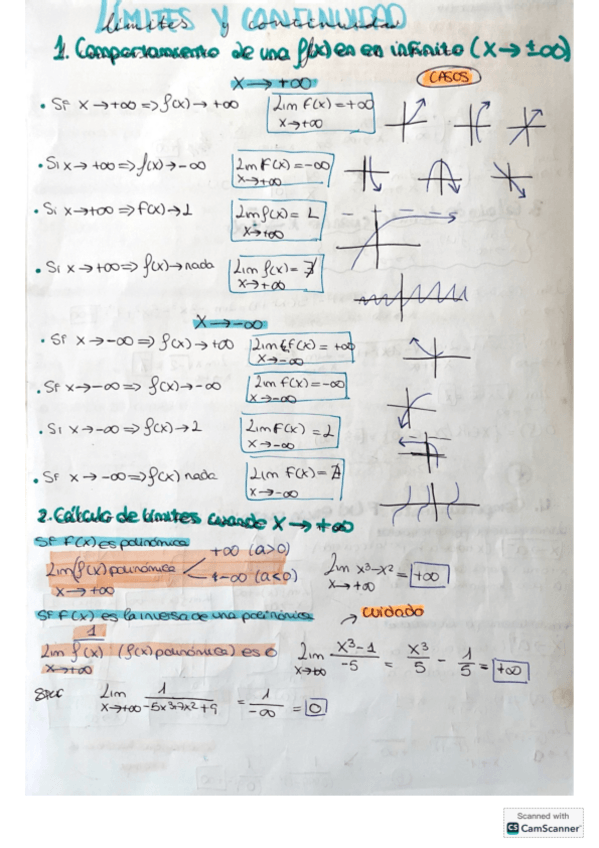 LÍMITES Y CONTINUIDAD
límites y continuidad
1. Comportamiento de una f(x) en en infinito (X→±∞)
X→+∞
CASOS
• Si X→+∞ ⇒ f(x)→+∞ Lim f(x)=+∞
X→+∞
• Si x→+∞ ⇒ f(x)→-∞ Lim f(x)=-∞
X→+∞
• Si x→+∞ ⇒ f(x)→L Lim f(x)= L
X→+∞
• Si x→+∞ ⇒ f(x)→nada Lim f(x)= ∄
X→+∞
X→-∞
• Si x→-∞ ⇒ f(x)→+∞ Lim f(x)=+∞
X→-∞
• Si x→-∞ ⇒ f(x)→-∞ Lim f(x)=-∞
X→-∞
• Si x→-∞ ⇒ f(x)→L Lim f(x)=L
X→-∞
• Si x→-∞ ⇒ f(x) nada Lim f(x)=∄
X→-∞
2. Cálculo de límites cuando X→+∞
Si f(x) es polinómica
+∞ (a>0)
Lim f(x) polinómica
-∞ (a<0)
X→+∞
Lim x³-x² = +∞
X→+∞
Si f(x) es la inversa de una polinómica
→ cuidado
1
Lim f(x) (f(x) polinómica) es 0
X→+∞
Lim x³-1/-5 = x³/5 - 1/5 = +∞
X→+∞
Lim 1/-5x³-7x²+9 = 1/-∞ = 0
X→+∞
Scanned with
CS CamScanner